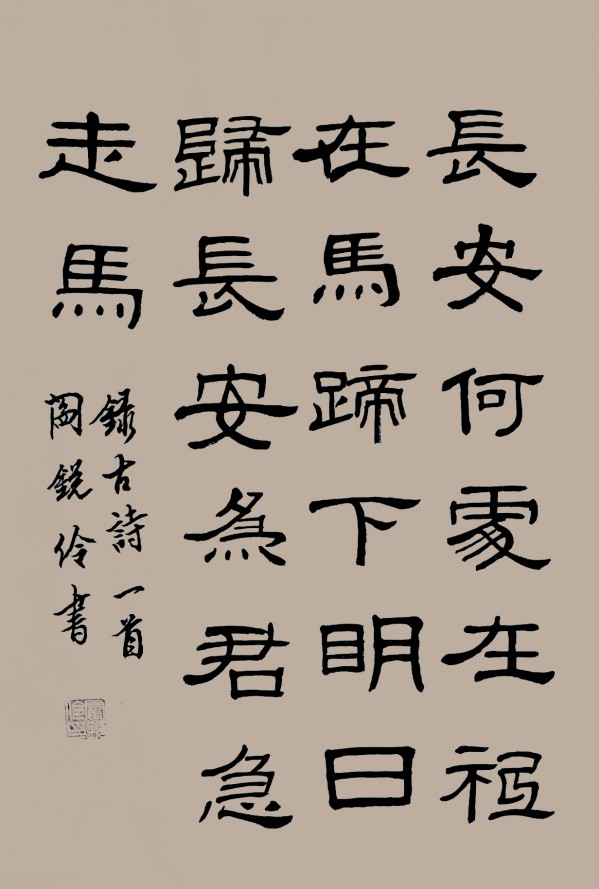 長安何處在祇
在馬蹄下眀日
歸長安為君急
走馬
錄古詩一首
閻銳伶書